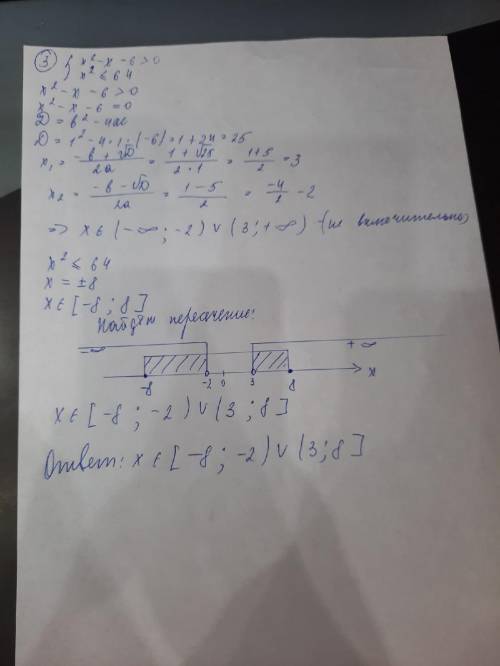 ③ { x² - x - 6 > 0
x² ≤ 64
x² - x - 6 > 0
x² - x - 6 = 0
D = b² - 4ac
D = 1² - 4 · 1 · (-6) = 1 + 24 = 25
x₁ = (-b + √D)/2a = (1 + √25)/(2 · 1) = (1+5)/2 = 3
x₂ = (-b - √D)/2a = (1 - 5)/2 = -4/2 - 2
⇒ x ∈ (-∞ ; -2) ∨ (3 ; +∞) - (не включительно)
x² ≤ 64
x = ±8
x ∈ [-8 ; 8]
Найдём пересечение:
-∞ + ∞
-8 -2 0 3 8 x
x ∈ [-8 ; -2) ∨ (3 ; 8]
Ответ: x ∈ [-8 ; -2) ∨ (3 ; 8]